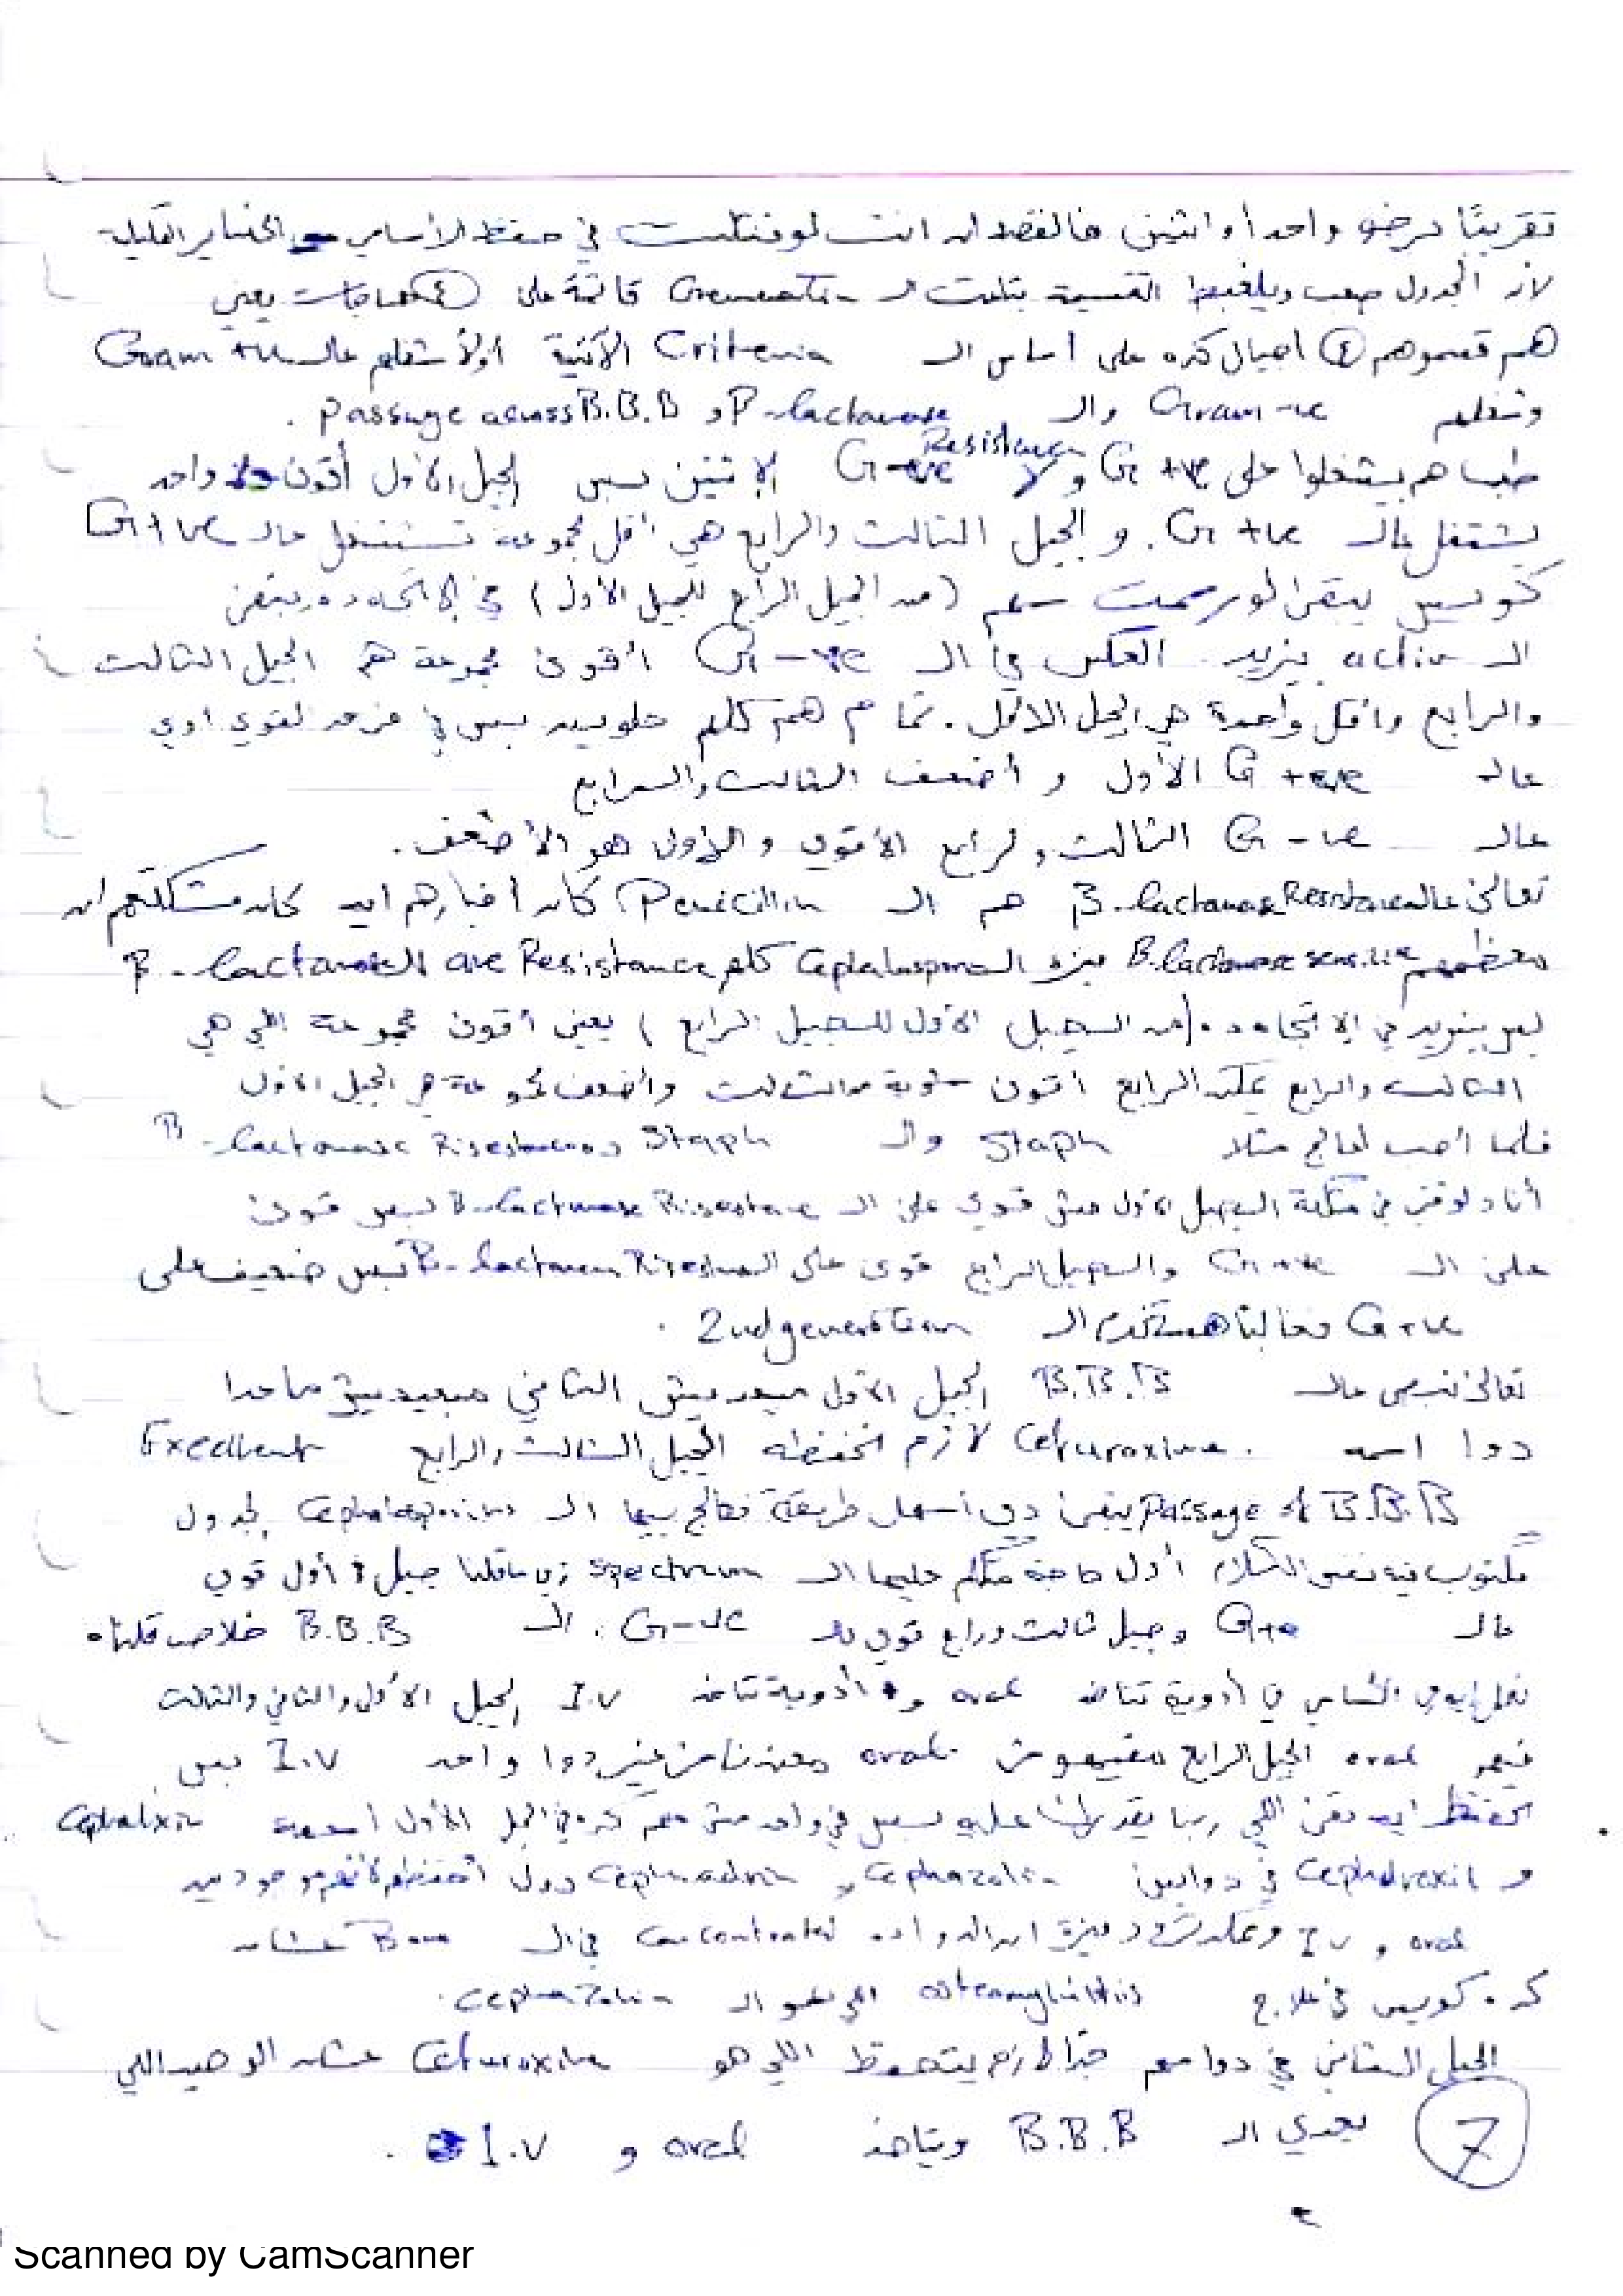 تقريبًا برضو واحد أو اتنين فالقصد ان انت لو فشلت في حفظ الأسامي
لان الجدول صعب ويلغبط القسمة بتاعت الـ Generation قائمة على ④ حاجات يعني
هم قسموهم ④ أجيال كده على أساس الـ Criteria الآتية أولاً شغلهم عالـ Gram +ve
وشغلهم Gram -ve والـ B-lactamase Resistance و Passage across B.B.B .
طب هم بيشتغلوا على G +ve و G -ve الاتنين بس الجيل الأول أقوى واحد
يشتغل عالـ G +ve . و الجيل التالت والرابع هي أقل مجموعة تشتغل عالـ G +ve
كويس يبقى لو رسمت سهم (من الجيل الرابع للجيل الأول) في الاتجاه ده يبقى
الـ action بيزيد العكس في الـ G -ve أقوى مجموعة هم الجيل التالت
والرابع وأقل واحدة هي الجيل الأول . تمام هم كلهم حلوين بس في فرق
عالـ G +ve الأول و أضعف التالت والرابع
عالـ G -ve التالت والرابع الأقوى والأول هو الأضعف .
تعالى عالـ B-lactamase Resistance هم الـ Penicillin كان أخبارهم ايه كان مشكلتهم ان
معظمهم B-lactamase sensitive ميزة الـ Cephalosporins كلهم are Resistance الـ B-lactamase
بس بيزيد في الاتجاه ده (من الجيل الأول للجيل الرابع) يعني أقوى مجموعة اللي هي
التالت والرابع يمكن الرابع أقوى شوية من التالت وأضعف مجموعة هي الجيل الأول
فلما أحب أعالج مثلا Staph والـ Staph B-lactamase Risestance
أنا دلوقتي في مشكلة الجيل الأول مش قوي على الـ B-lactamase Risestance بس قوى
على الـ G +ve والجيل الرابع قوى على الـ B-lactamase Risestance بس ضعيف على
G +ve فغالبا هستخدم الـ 2nd generation .
تعالى نرمي عالـ B.B.B الجيل الأول مبيعديش التاني مبيعديش ماعدا
دوا اسمه Cefuroxime . لازم تحفظه الجيل التالت والرابع Excellent
Passage of B.B.B يبقى دي أسهل طريقة نعالج بيها الـ Cephalosporins الجدول
مكتوب فيه نفس الكلام أول حاجة متكلم عليها الـ spectrum زي ما قلنا جيل أول قوي
عالـ G+ve وجيل تالت ورابع قوي G-ve . الـ B.B.B خلاص قلناه
في أدوية تتاخد oral و أدوية تتاخد I.V الجيل الأول والتاني والتالت
فيهم oral الجيل الرابع مفيهوش oral معندناش غير دوا واحد I.V بس
تحفظ ايه بقى اللي ربنا يقدرك عليه بس في واحد مش مهم كده في الجيل الأول اسمه Cephalexin
و Cephadroxil في دوايين Cephazolin و Cephradin دول احفظهم لانهم موجودين
oral و I.V وعكله ميزة ان الدوا ده Concentrated في الـ Bone عشان
كده كويس في علاج osteomylitis اللي هو الـ cephazolin .
الجيل التاني في دوا مهم جدا لازم يتحفظ اللي هو Cefuroxime عشان الوحيد اللي
بيعدي الـ B.B.B ويتاخد oral و I.V .
7
Scanned by CamScanner